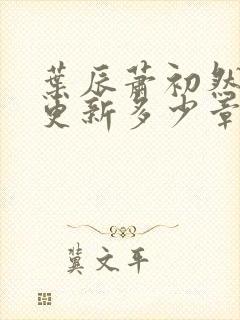 葉辰蕭初然
更新多少章
冀文平